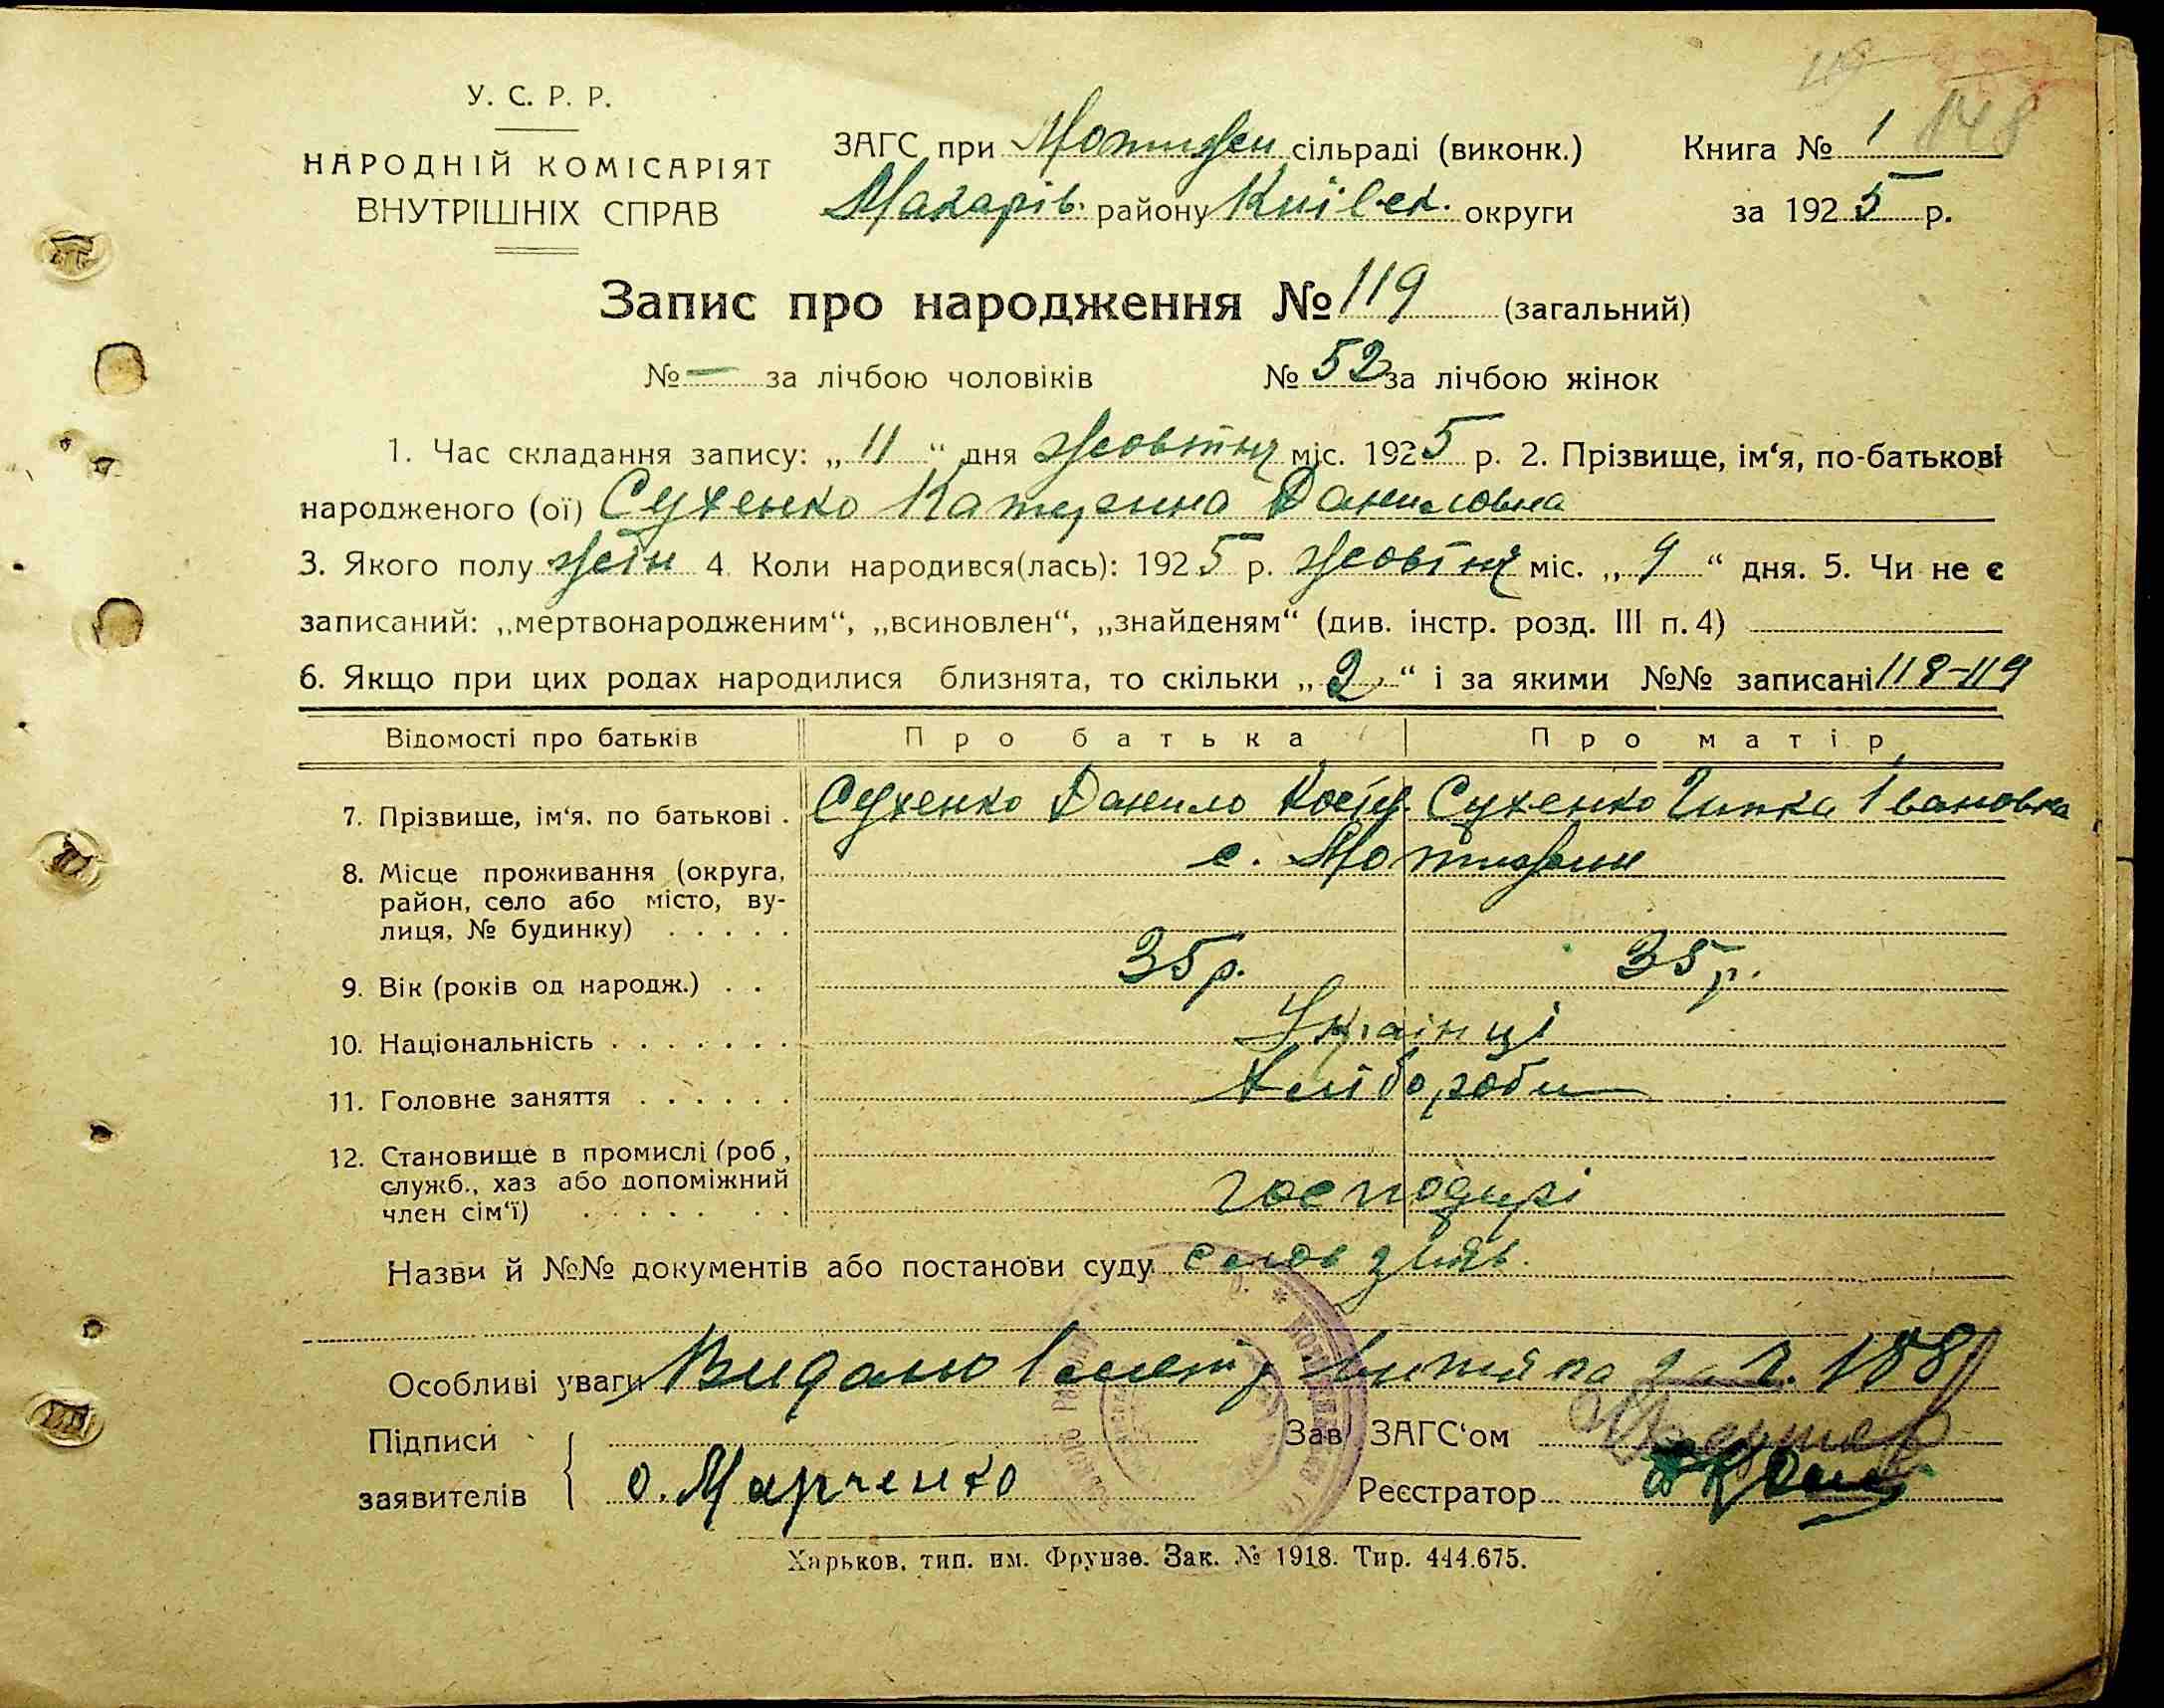 119
148
У. С. Р. Р.
НАРОДНІЙ КОМІСАРІЯТ
ВНУТРІШНІХ СПРАВ
ЗАГС при Мотижен сільраді (виконк.)
Макарів. району Київск. округи
Книга № 1
за 1925 р.
Запис про народження № 119 (загальний)
№ — за лічбою чоловіків № 52 за лічбою жінок
1. Час складання запису: „11“ дня жовтня міс. 1925 р. 2. Прізвище, ім‘я, по-батькові
народженого (ої) Сухенко Катерина Даниловна
3. Якого полу жін 4. Коли народився(лась): 1925 р. жовтня міс. „9“ дня. 5. Чи не є
записаний: „мертвонародженим“, „всиновлен“, „знайденям“ (див. інстр. розд. III п. 4)
6. Якщо при цих родах народилися близнята, то скільки „2“ і за якими №№ записані 118-119
Відомості про батьків Про батька Про матір
7. Прізвище, ім‘я. по батькові . Сухенко Данило Сухенко Івановна
8. Місце проживання (округа, с. Мотижин
район, село або місто, ву-
лиця, № будинку) . . . . .
9. Вік (років од народж.) . . 35 р. 35 р.
10. Національність . . . . . . . Українці
11. Головне заняття . . . . . . Хліборoби
12. Становище в промислі (роб ,
служб., хаз або допоміжний господарі
член сім‘ї) . . . . . . .
Назви й №№ документів або постанови суду
Особливі уваги Видано 188
Підписи
заявителів
О. Марченко
Зав ЗАГС‘ом
Реєстратор
Харьков, тип. им. Фрунзе. Зак. № 1918. Тир. 444.675.